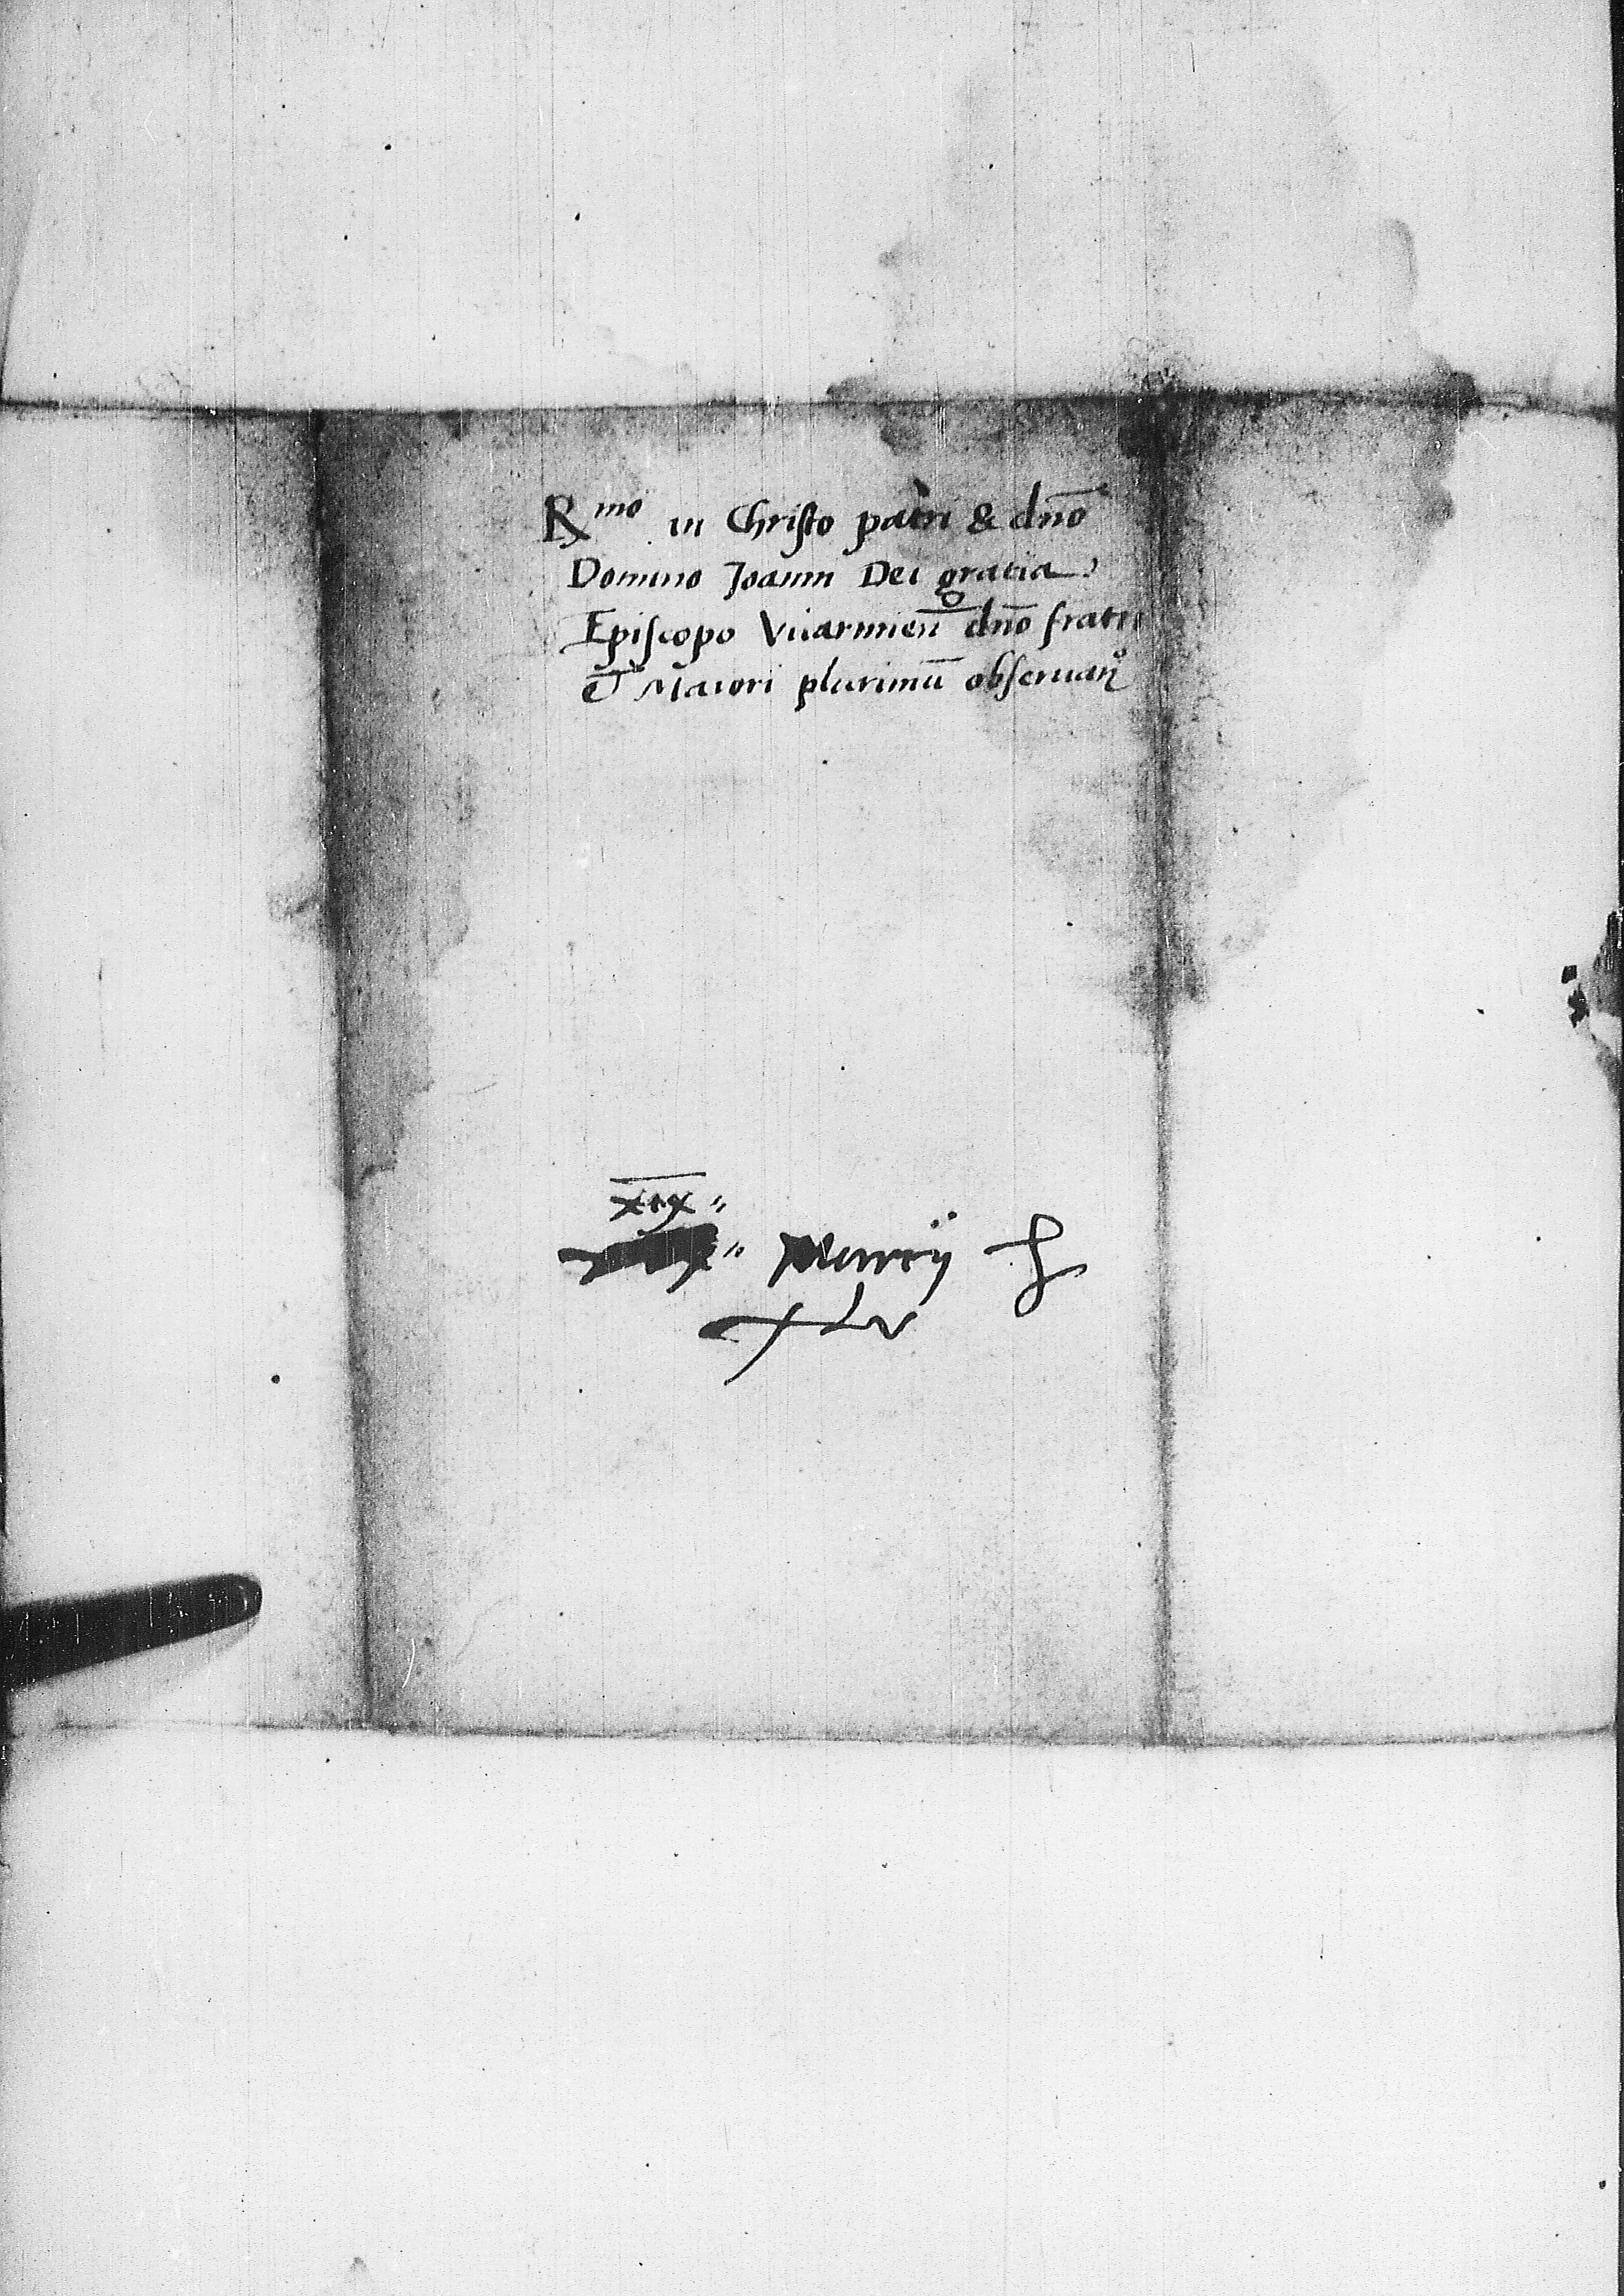 R^mo in Christo patri & dn̄o
Domino Joanni Dei gratia
Episcopo Vuarmien̄ dn̄o fratri
et Maiori plurimū obseruan^o
xix
Marcij
xlv